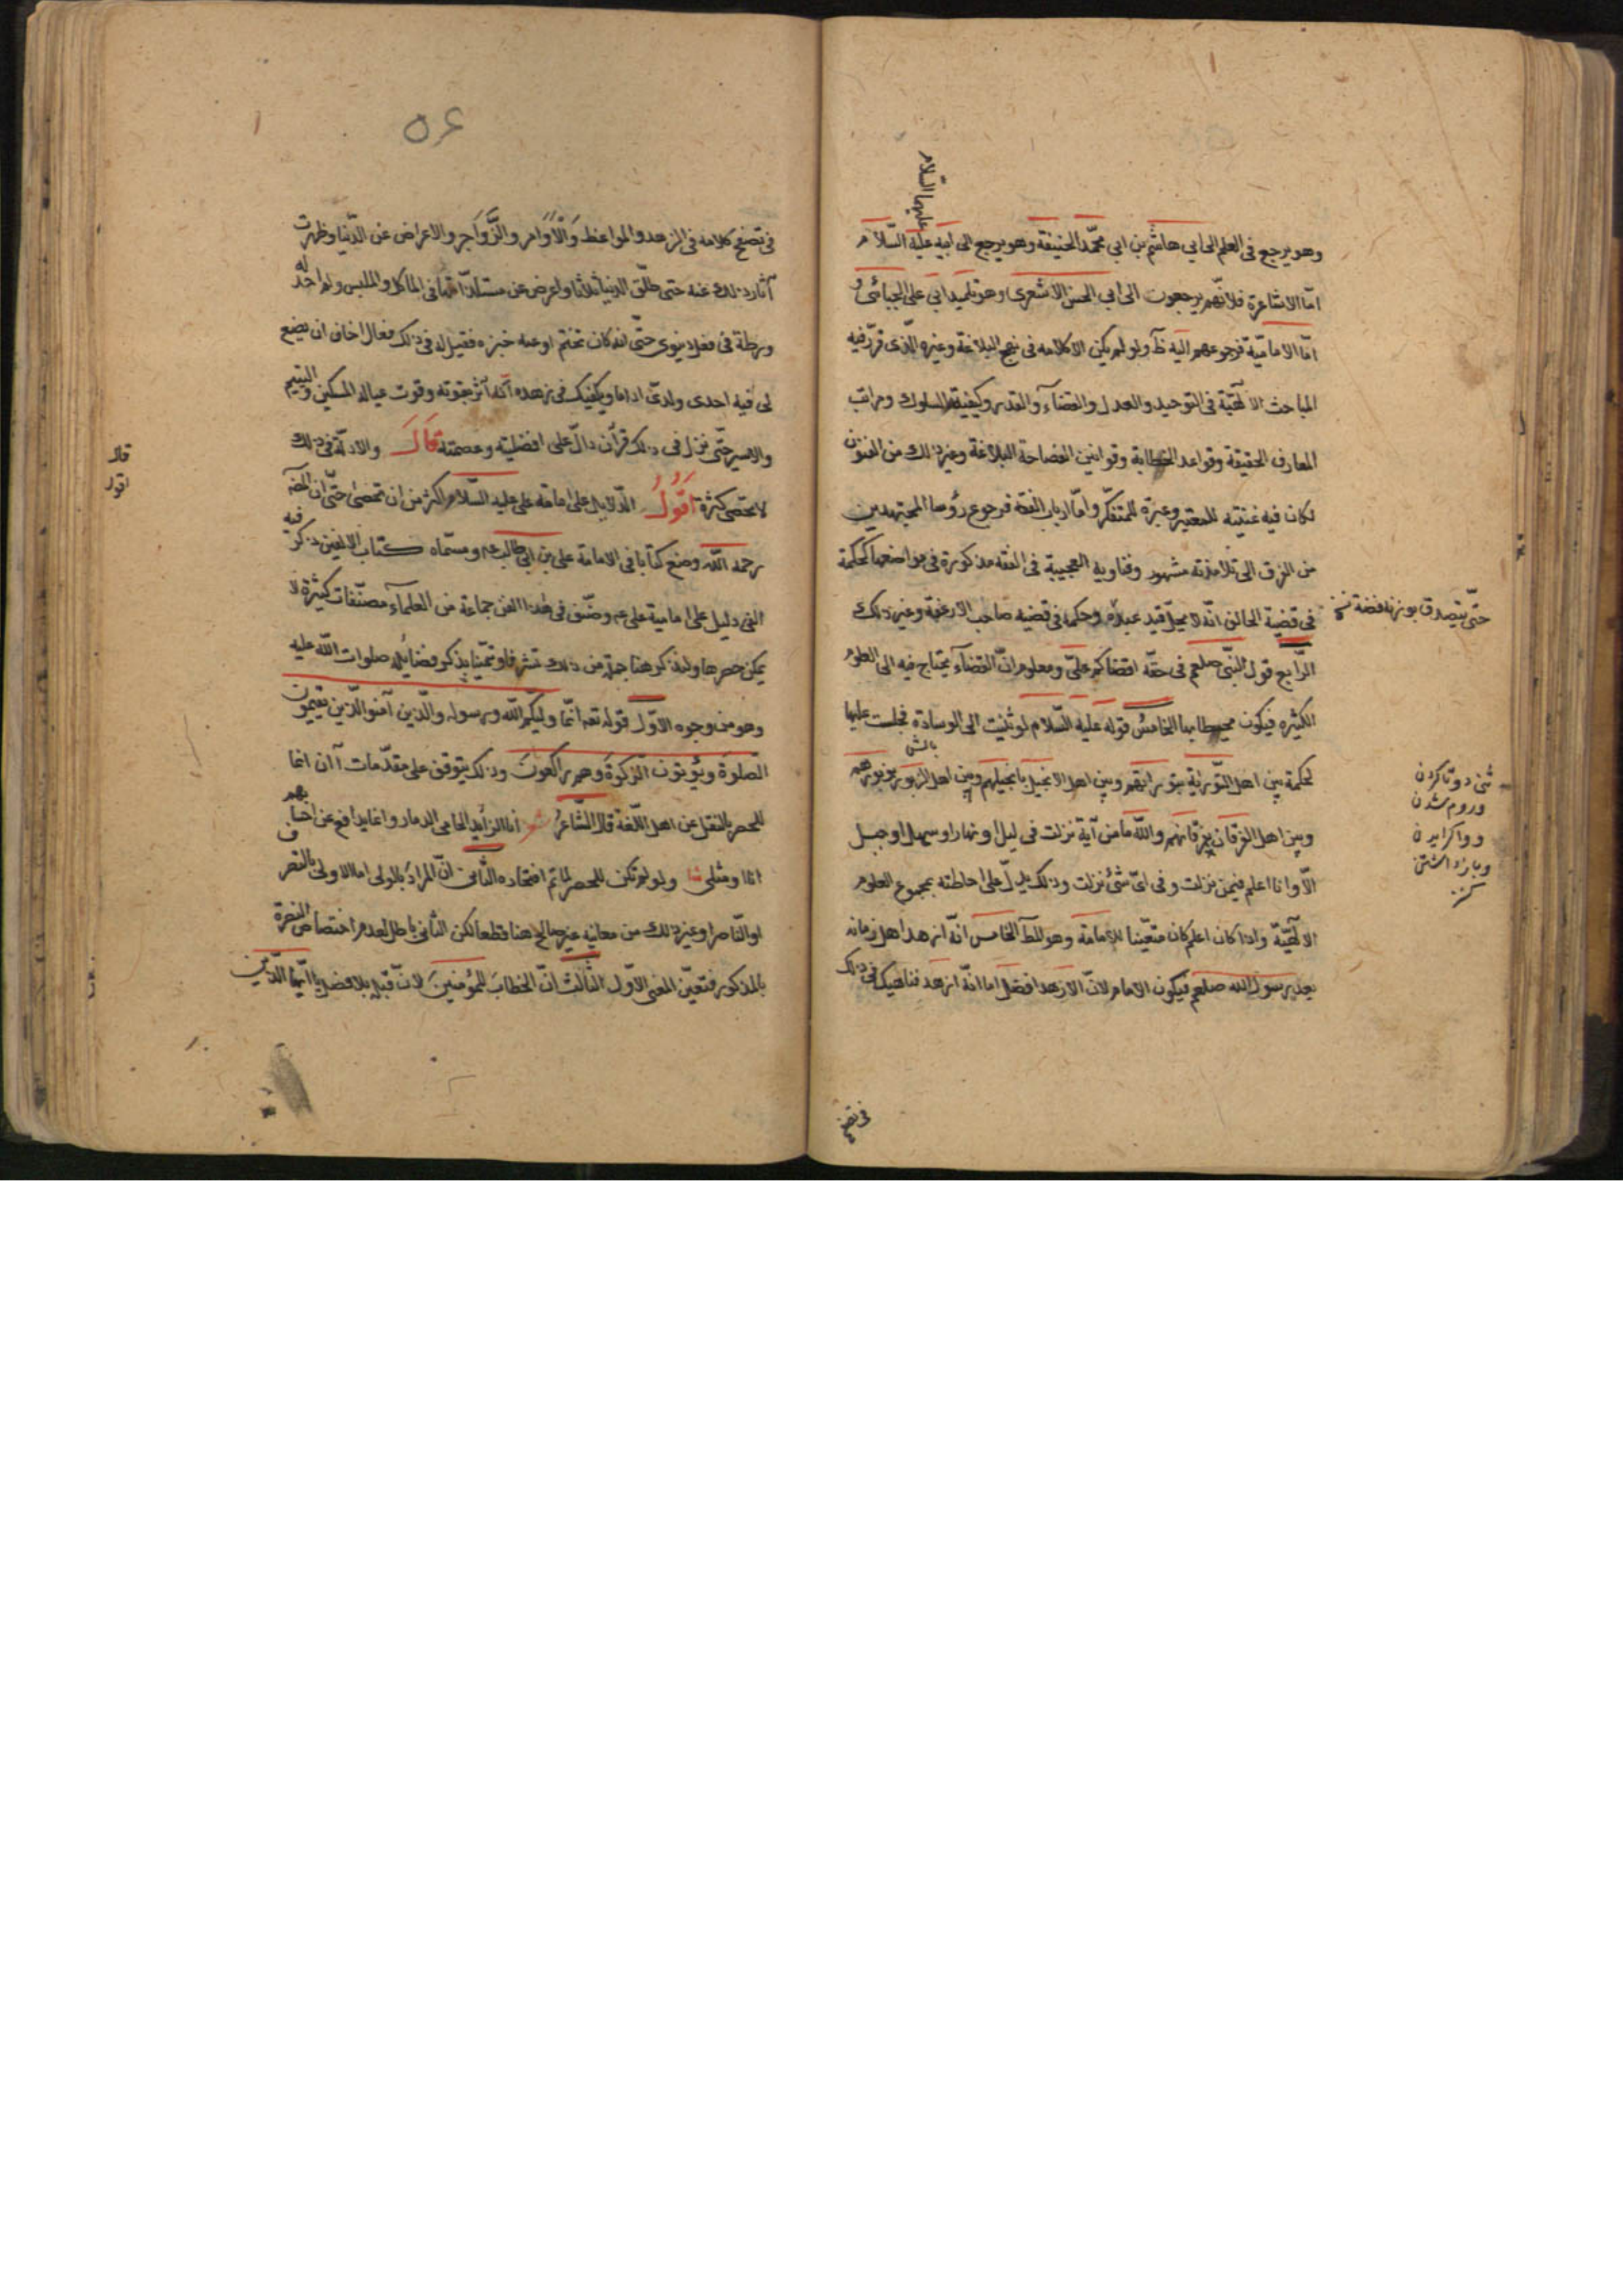 عليهما السّلام
وهو يرجع فى العلم الى ابى هاشم بن ابى محمّد الحنيفة وهو يرجع الى ابيه عليه السّلام
امّا الاشاعرة فلانّهم يرجعون الى ابى الحسن الاشعرى وهو تلميذ ابى على الجبائى و
امّا الاماميّة فرجوعهم اليه ظآ ولو لم يكن الا كلامه فى نهج البلاغة وغيره الّذى قرّر فيه
المباحث الالهيّة فى التوحيد والعدل والقضآء والقدر وكيفية السلوك ومراتب
المعارف الحقيقة وقواعد الخطابة وقوانين الفصاحة البلاغة وغير ذلك من الفنون
لكان فيه غنيته للمعتبر وعبرة للمتفكّر وامّا ارباب الفقه فرجوع رؤسا المجتهدين
من الفرق الى تلامذته مشهور وفتاويه العجيبة فى الفقه مذكورة فى مواضعها كحكمة
فى قضية الحالف انّه لا يحلّ قيد عبده وحكمه فى قضيه صاحب الارغفة وغير ذلك
حتّى يتصدق بوزنه فضة
الرّابع قول النّبى صلعم فى حقّه اقضاكم علىّ ومعلوم انّ القضآء يحتاج فيه الى العلوم
الكثيره فيكون محيطا بها الخامس قوله عليه السّلام لو ثنيت الى الوسادة فجلست عليها
بالش
لحكمة بين اهل التّورية بتوراتهم وبين اهل الانجيل بانجيلهم وبين اهل الزبور بزبورهم
وبين اهل الفرقان بفرقانهم والله ما من آية نزلت فى ليل او نهار او سهل او جبل
الّا وانا اعلم فيمن نزلت وفى اىّ شئ نزلت وذلك يدلّ على احاطته بمجموع العلوم
الالهيّة واذا كان اعلم كان متعيّنا للامامة وهو المط الخامس انّه ازهد اهل زمانه
بعد رسول الله صلعم فيكون الامام لانّ الازهد افضل اما انّه ازهد فناهيك فى ذلك
ثنى دوتا كردن
وروم شدن
ووا كرايدن
وبازداشتن
كنز
فى تصفح
٥٤
فى تصفح كلامه فى الزهد والمواعظ وَالْاَوَامر والزَّوَاجر والاعراض عن الدّنيا وظهرت
آثار ذلك عنه حتى طلّق الدنيا ثلاثا واعرض عن مستلذّاتها فى المأكل والملبس ولم
حتّى انه كان يختم اوعيه خبزه فقيل له فى ذلك فقال اخاف ان يضع
لى فيه احدى ولدىّ اداما ويكفيك فى زهده انّه آثر بقوته وقوت عياله المسكين واليتيم
والاسير حتّى نزل فى ذلك قرآن دالّ على افضليته وعصمته قَالَ والادلّة فى ذلك
لا تحصى كثرة اَقُولُ الدّلايل على امامة على عليه السّلام اكثر من ان تحصى حتّى ان المصَه
رحمه الله وضع كتابا فى الامامة على بن ابى طالب عم وسمّاه كتاب الالفين ذكر فيه
الفى دليل على اماميّة على عم وصنّف فى هذا الفن جماعة من العلمآء مصنّفات كثيرة لا
يمكن حصرها ولنذكر هنا جملة من ذلك تشرفا وتيمّنا بذكر فضائله صلوات الله عليه
وهو من وجوه الاوّل قوله تعه انّما وليّكم الله ورسوله والّذين آمنو الّذين يقيمون
الصلوة ويؤتون الزكوة وهم راكعون وذلك يتوقف على مقدّمات آ ان انما
للحصر بالنقل عن اهل اللّغة قال الشّاعرُ شعر انا الزائد الحامى الدمار وانما يدافع عن احسابهم
انا ومثلى ولو لم تكن للحصر لما تم افتخاره الثّانى انّ المراد بالمولى اما الاولى بالتصرف
او النّاصر او غير ذلك من معانيه غير صالح هنا قطعا لكن الثانى باطل لعدم اختصاص النصرة
بالمذكور فتعيّن المعنى الاوّل الثّالث انّ الخطاب للمؤمنينَ لانّ قبله بلا فصل يا ايّها الّذين
قال
اقول